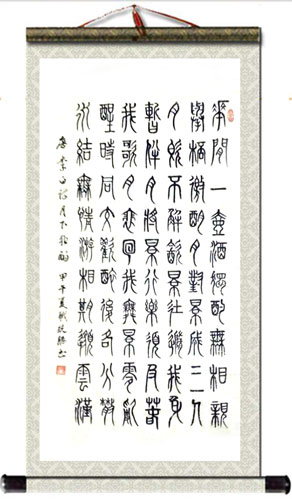 花間一壺酒獨酌無相親
舉杯邀明月對景成三人
月既不解飲景徒隨我身
暫伴月將景行樂須及春
我歌月裴回我舞景零亂
醒時同交歡醉後各分散
永結無情游相期邈雲漢
唐李白詩月下獨酌 甲午夏 書